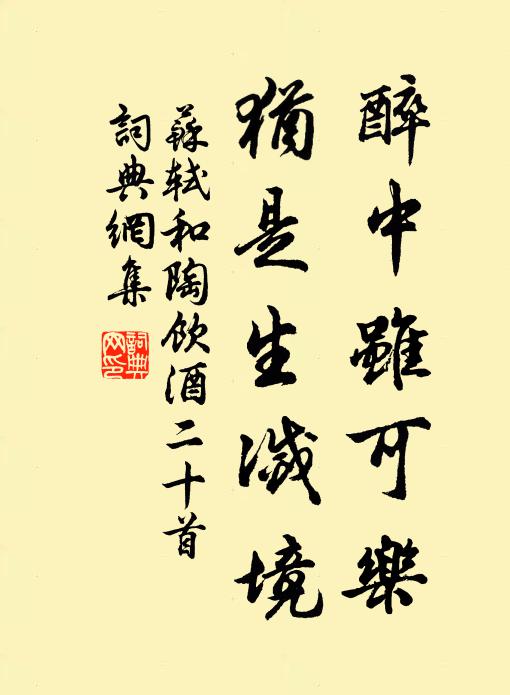 醉中雖可樂
猶是生滅境
蘇軾和陶飲酒二十首
詞典網集
詞典
网印